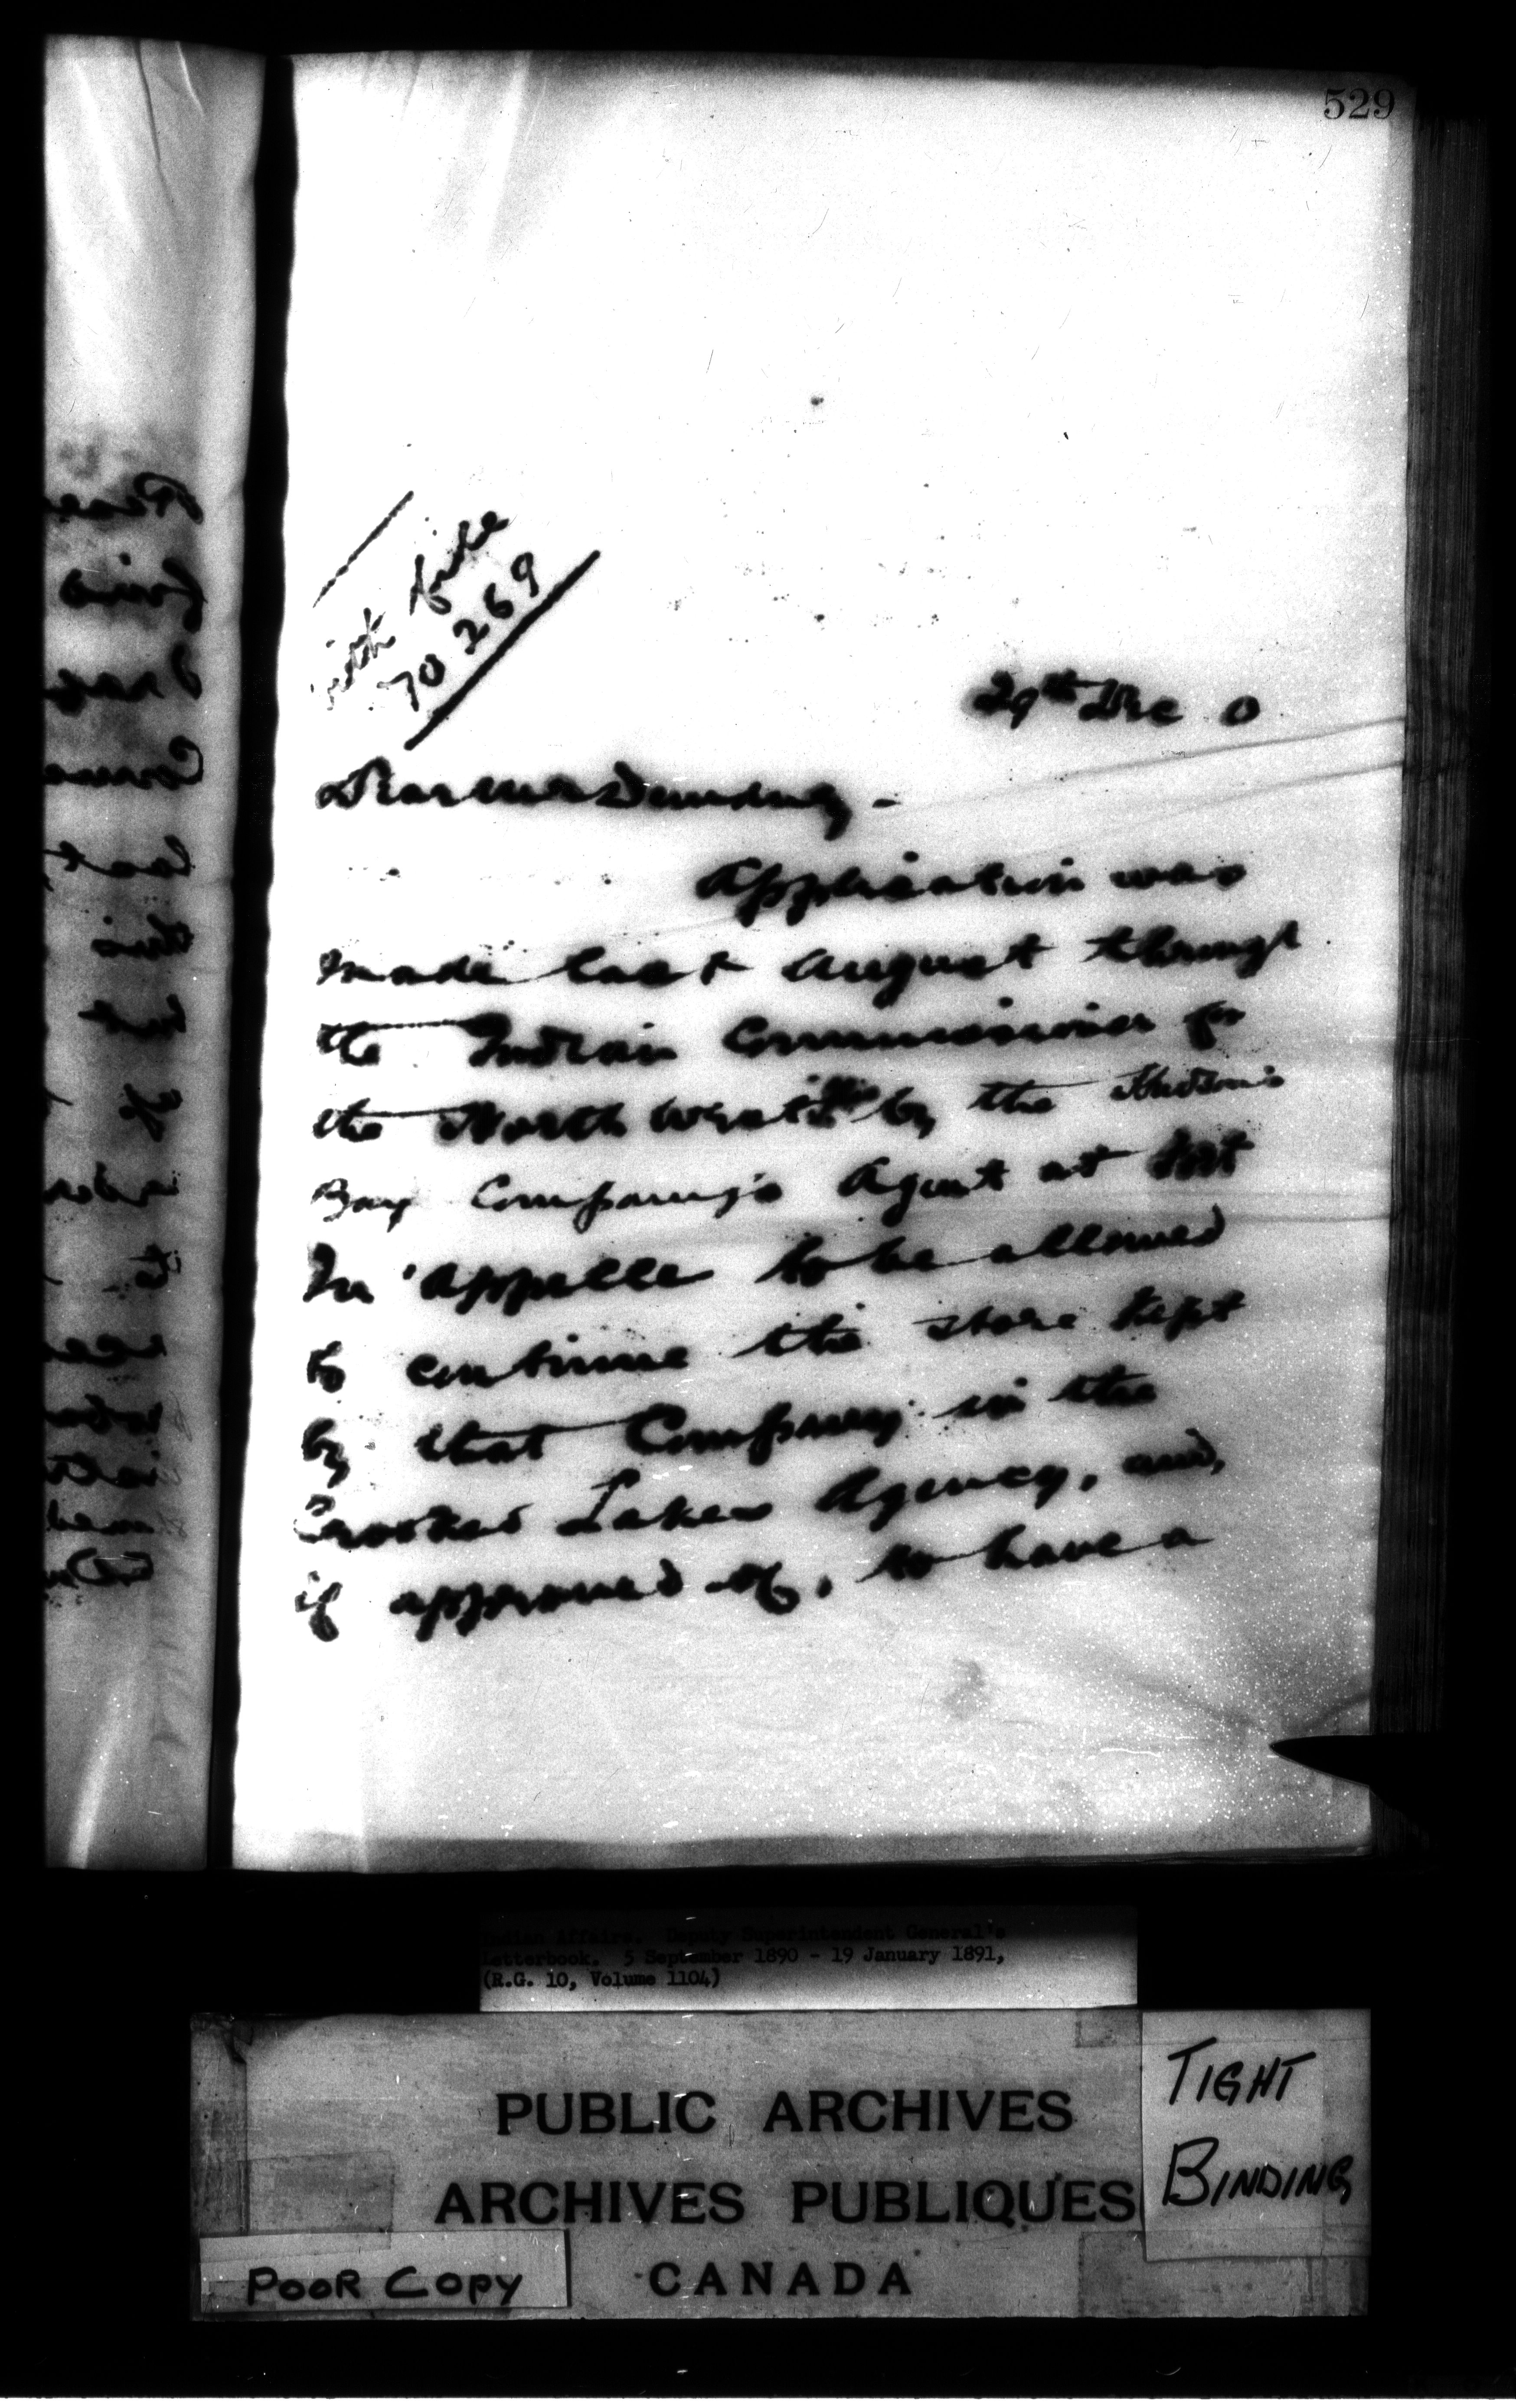 529
with file
70269
29th Dec 0
Dear Mr Dewdney -
Application was
made last August through
the Indian Commissioner for
the North West by the Hudson's
Bay Company's Agent at Fort
Qu'appelle to be allowed
to continue the store kept
by that Company in the
Crooked Lakes Agency, and,
if approved of, to have a
Indian Affairs. Deputy Superintendent General's
Letterbook. 5 September 1890 - 19 January 1891,
(R.G. 10, Volume 1104)
PUBLIC ARCHIVES
ARCHIVES PUBLIQUES
CANADA
TIGHT
BINDING
POOR COPY